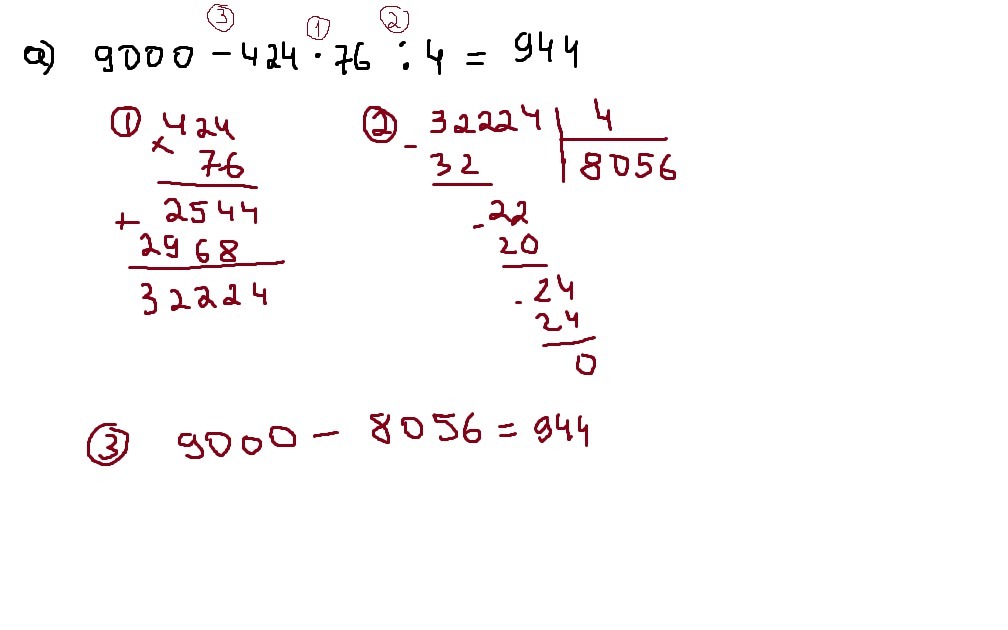 ③ ① ②
a) 9000 - 424 · 76 : 4 = 944
① 424
× 76
+ 2544
2968
32224
② - 32224 | 4
32 | 8056
- 22
20
- 24
24
0
③ 9000 - 8056 = 944